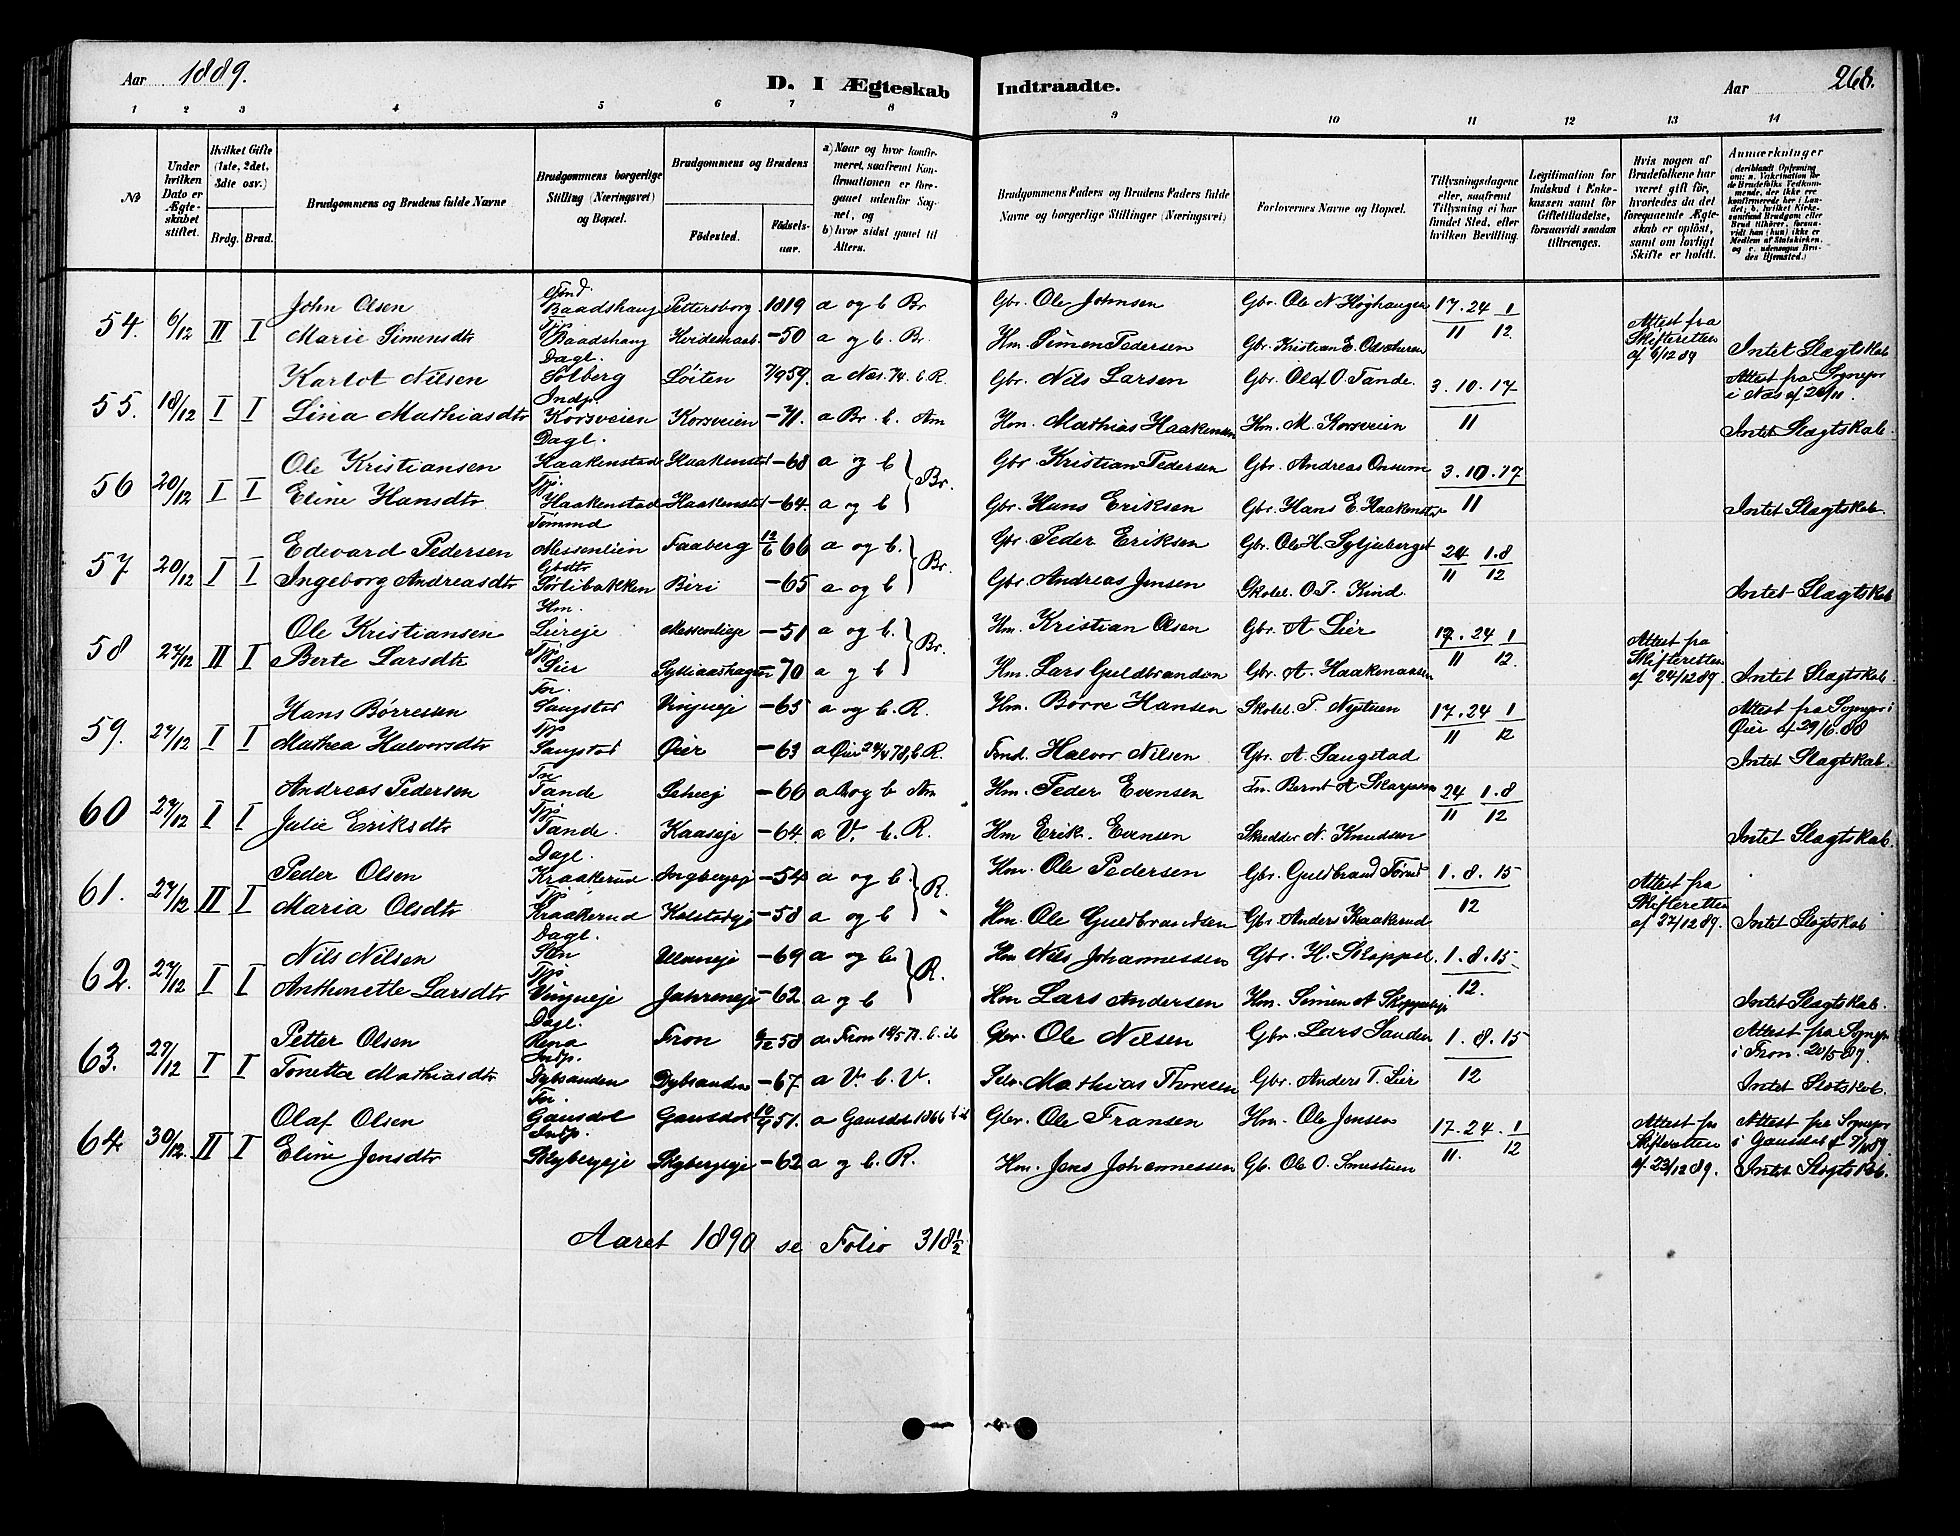 Aar 1889.
D. I Ægteskab Indtraadte.
Aar 268.
1 2 3 4 5 6 7 8 9 10 11 12 13 14
No
Under hvilken Dato er Ægteskabet stiftet.
Hvilket Gifte (1ste, 2det, 3die osv.)
Brdg. Brud.
Brudgommens og Brudens fulde Navne
Brudgommens borgerlige Stilling (Næringsvei) og Bopæl.
Brudgommens og Brudens
Fødested.
Fødselsaar.
a) Naar og hvor konfirmeret, saafremt Konfirmationen er foregaaet udenfor Sognet, og
b) hvor sidst gaaet til Alters.
Brudgommens Faders og Brudens Faders fulde Navne og borgerlige Stillinger (Næringsvei)
Forlovernes Navne og Bopæl.
Tillysningsdagene eller, saafremt Tillysning ei har fundet Sted, efter hvilken Bevilling.
Legitimation for Indskud i Enkekassen samt for Giftetilladelse, forsaavidt saadan tiltrænges.
Hvis nogen af Brudefolkene har været gift før, hvorledes da det foregaaende Ægteskab er opløst, samt om lovligt Skifte er holdt.
Anmærkninger
54. 6/12 II I John Olsen Baadshaug Pettersborg 1819 a og b Br Gbr. Ole Johnsen Gbr. Ole N. Høghaugen 17. 24 1
Marie Simensdtr Baadshaug -50 a og b. Br. Hm. Simen Pedersen Gbr. Kristian E. 11 12 Attest fra Skifteretten af 6/12 89 Intet Slægtskab
55. 18/12 I I Karlot Nilsen Dagl. Solberg Løiten 7/9 59. a Næs. 74. b. R. Gbr. Nils Larsen Gbr. Olaf O. Tande. 3. 10. 17 Attest fra Sognepr i Næs af 26/11.
Lina Mathiasdtr Indp. Korsveien Korsveien -71. a Br. b. Am Hm. Mathias Haakensen Hm. M. Korsveien 11 Intet Slægtskab.
56 20/12 I I Ole Kristiansen Dagl. Haakenstad Haakenstad -68 a og b Br. Gbr Kristian Pedersen Gbr. Andreas Onsum 3. 10. 17
Eline Hansdtr. Tjp. Haakenstad Haakenstad -64. a og b Gbr. Hans Eriksen Gbr. Hans E Haakenstad 11 Intet Slægtskab.
57 20/12 I I Edevard Pedersen Tømmd Messenlien Faaberg 12/6 66 a og b. Br. Gbr. Peder Eriksen Gbr. Ole H. Syljuberget 24 1.8
Ingeborg Andreasdtr Gbdtr Sørlibakken Biri -65 a og b Gbr. Andreas Jensen Skolel. O. P. Kind. 11 12 Intet Slægtskab
58 27/12 II I Ole Kristiansen Hm. Leireje Messenlieje -51 a og b. Br. Hm. Kristian Olsen Gbr. A Lier 17. 24 1
Berte Larsdtr Tjp Lier -70 a og b Hm. Lars Guldbrandsen Gbr. A. Haakenaasen 11 12. Attest fra Skifteretten af 24/12 89. Intet Slægtskab.
59. 27/12 I I Hans Børresen Saugstad Vingneje -65 a og b. R. Hm. Børre Hansen Skolel. P. Nystuen 17. 24 1 Attest fra Sognepr i Øier af 29/6. 88
Mathea Halvorsdtr Tjp Saugstad Øier -63 a Øier 78, b. R. Halvor Nilsen Gbr. A. Saugstad 11 12 Intet Slægtskab.
60 27/12 I I Andreas Pedersen Tande -66 a og b Am Hm. Peder Evensen Bernt A. 24 1.8
Julie Eriksdtr Tjp Tande. Kaaseje -64. a V. b. R. Hm Erik. Evensen Skrædder N. Knudsen 11 12 Intet Slægtskab.
61. 27/12 II I Peder Olsen Dagl. Kraakerud -54 a og b. R. Hm. Ole Pedersen Gbr. Guldbrand 1. 8. 15
Maria Olsdtr Tjp Kraakerud Kolstadeje -58 a og b Hm. Ole Guldbrandsen Gbr. Anders Kraakerud 12 Attest fra Skifteretten af 27/12 89. Intet Slægtskab
62. 27/12 I I Nils Nilsen Dagl. -69 a og b. R. Hm. Nils Johannessen Gbr. H. Skappel. 1. 8. 15
Anthonette Larsdtr Tjp Vingneje -62 a og b Hm Lars Andersen Hm. Simen A. 12. Intet Slægtskab.
63. 27/12 I I Petter Olsen Dagl. Rena Fron 58 a. Fron b. ib Gbr. Ole Nilsen Gbr. Lars Sanden 1. 8. 15 Attest fra Sognepr i Fron. 20/5 89.
Tonetta Mathiasdtr Indp. Dybsanden Dybsanden -67. a V. b. V. Selv. Mathias Thoresen Gbr. Anders T. Lier 12 Intet Slgtskab.
64 30/12. II I Olaf Olsen Gausdal Gausdal 51. a Gausdal 1866 b ib Gbr. Ole Fransen Hm. Ole Jensen 17. 24. 1 Attest fra Sognepr i Gausdal
Eline Jensdtr Indp. Skybergeje Skybergeje -62 a og b. R. Hm. Jens Johannessen Gb. Ole O. Smestuen 11. 12 Attest fra Skifteretten af 23/12 89. Intet Slægtskab.
Aaret 1890 se Folio 318 1/2